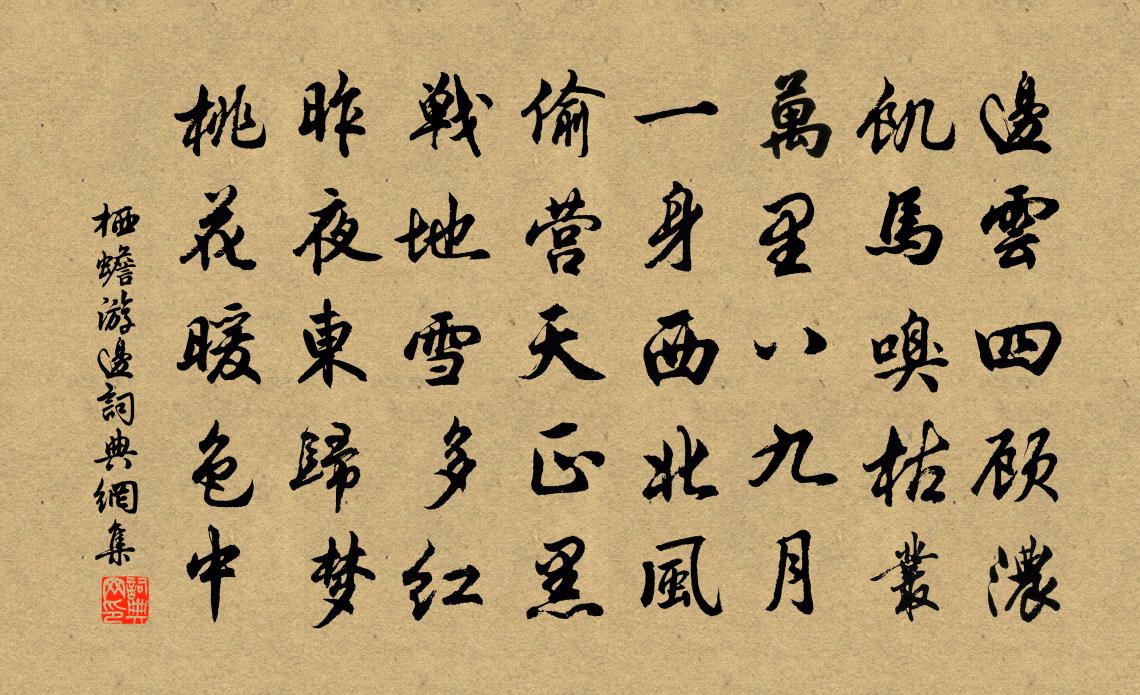 邊雲四顾濃
飢馬嗅枯叢
萬里八九月
一身西北風
偷营天正黑
戦地雪多紅
昨夜東歸梦
桃花暖色中
栖蟾游邊詞典網集
詞典网印